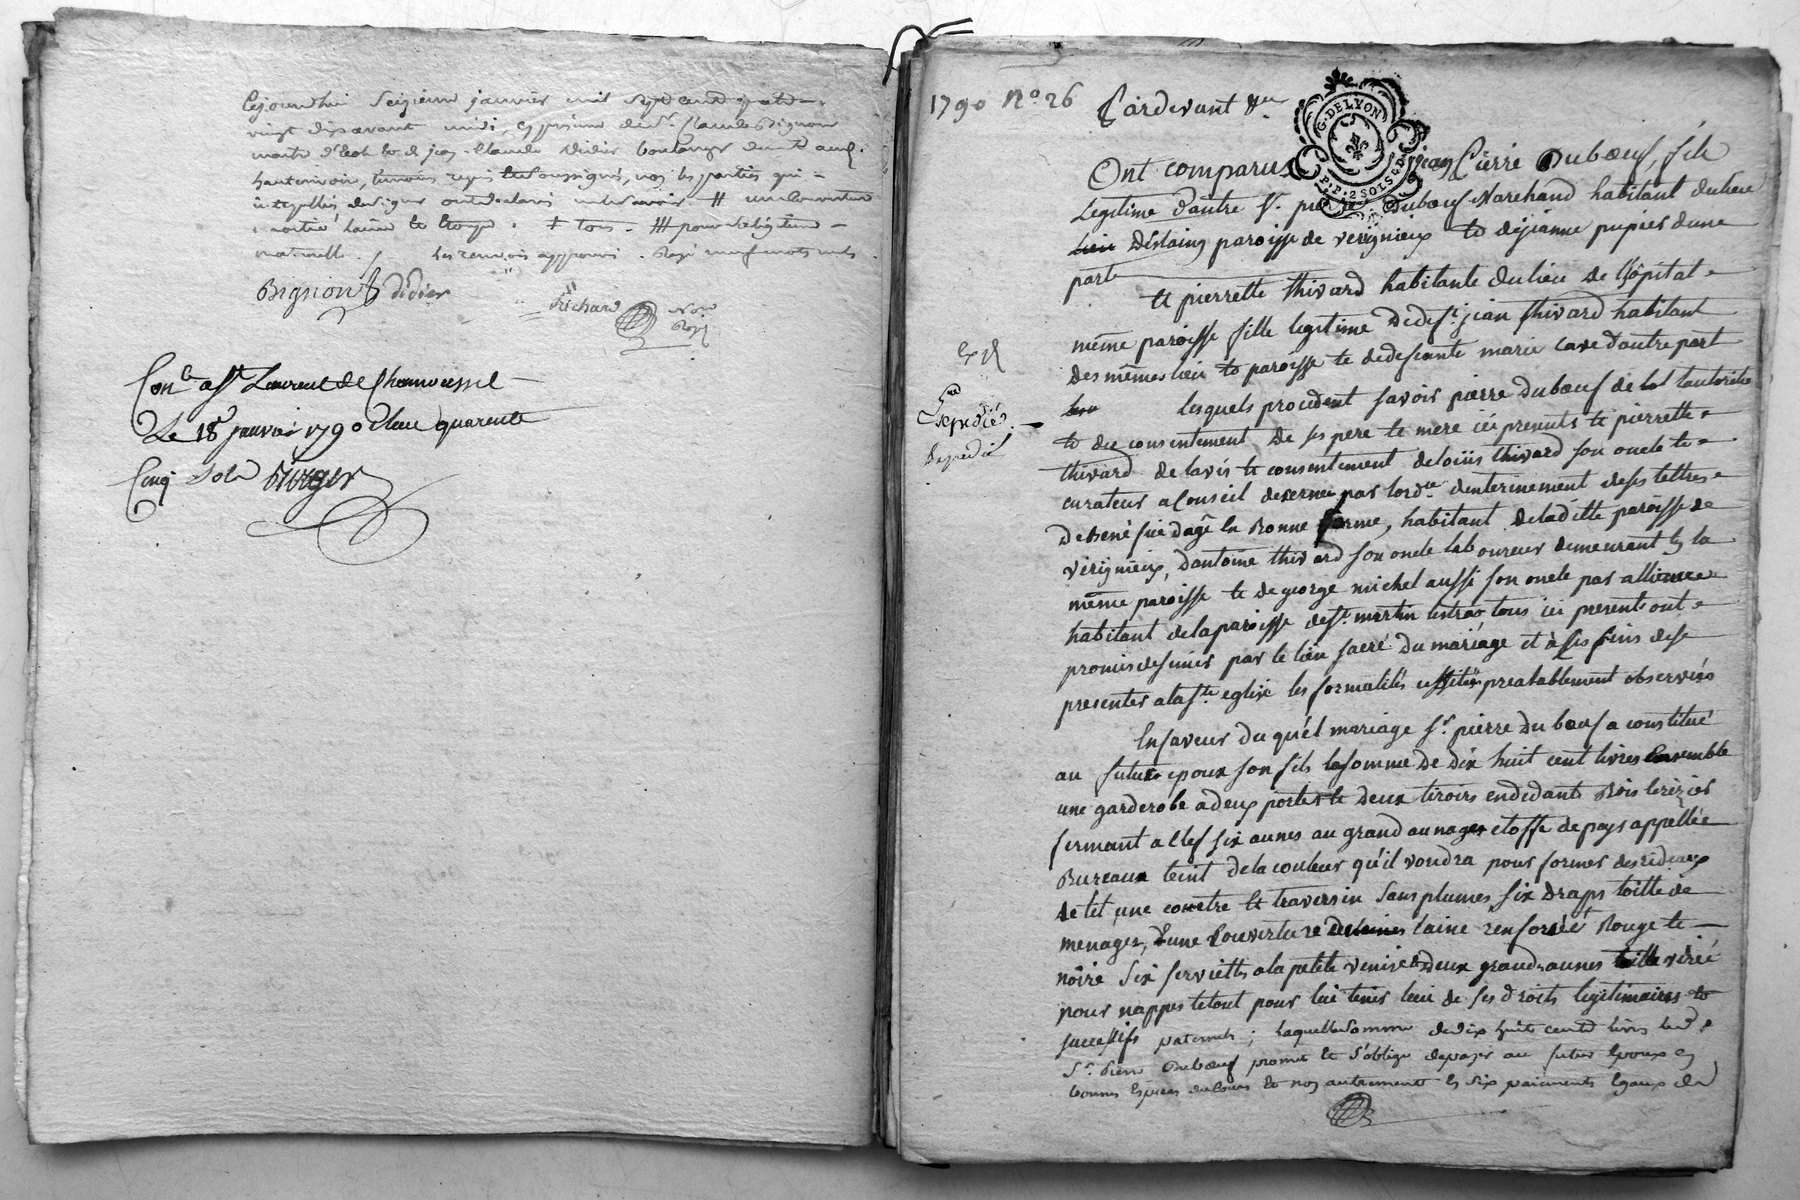 Cejourdhui Seizieme janvier mil sept cent quatre
vingt dix avant midi, en presence de Sr. Claude Bignon
maitre d'ecole et de jean Claude Didier boulanger
temoins requis soussignés, non les parties qui
interpellés de signer ont declaré
naturelle. les renvois approuvés. Rayé neuf mots nuls.
Bignon Didier
Richard Nore
Royl
Conlé à St Laurent de Chamousset
Le 18 janvier 1790 Reçu quarente
Cinq Sols
1790 No 26 Pardevant
G. DE LYON
P.P. 2 SOLS 8 D
Ont comparus jean Pierre Duboeuf, fils
Legitime d'autre Sr. pierre Duboeuf Marchand habitant du lieu
paroisse de verignieux et de jeanne pupier d'une
part
et pierrette thivard habitante du lieu de l'hôpital
même paroisse fille legitime de def.t jean thivard habitant
des mêmes lieu et paroisse et de defeunte marie cave d'autre part
lesquels procedent savoir pierre duboeuf de lad l'autorité
et du consentement de ses pere et mere ici presents et pierrette
Expediée
Expedié
thivard de l'avis et consentement de loüis thivard son oncle et
curateur a Conseil decerné par l'ordce d'enterinement de ses lettres
de Benéfice d'age en Bonne forme, habitant de la ditte paroisse de
verignieux, d'antoine thivard son oncle laboureur demeurant en la
même paroisse et de george michel aussi son oncle par alliance
habitant de la paroisse de St. martin lestra tous ici presents ont
promis de s'unir par le lien sacré du mariage et à ses fins de se
presenter a la Ste. eglise les formalités usitées prealablement observées
En faveur du qu'el mariage Sr. pierre du boeuf a constitué
au futur epoux son fils la somme de dix huit cent livres Ensemble
une garderobe a deux portes et deux tiroirs en dedans Bois cerizier
fermant a clef six aunes au grand aunages etoffe de pays appellée
Bureaux teint de la couleur qu'il voudra pour former des rideaux
de lit, une couetre et traversin sans plumes six draps toille de
menager, d'une Couverture laine renforcée Rouge et
noire six serviettes a la petite venise et deux grandes aunes toille virée
pour nappes le tout pour lui tenir lieu de ses droits legitimaires et
successifs paternels; laquelle somme de dix huit cents livres led.
Sr. Pierre Duboeuf promet et s'oblige de payer au futur Epoux en
bonnes Especes de cours et non autrement en six paiements Egaux de